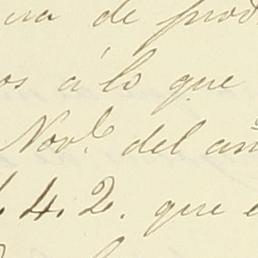 de prod
os á lo que
Nov.e del añ
4. 2. que